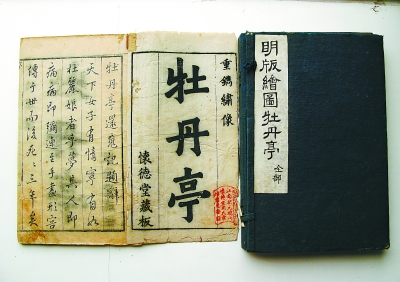 明版繪圖牡丹亭 全部
重鐫繡像
牡丹亭
懷德堂藏板
牡丹亭還魂記題辭
天下女子有情寧有如
杜麗娘者乎夢其人即
病病即彌連至手畫形容
傳于世而後死〻三年矣